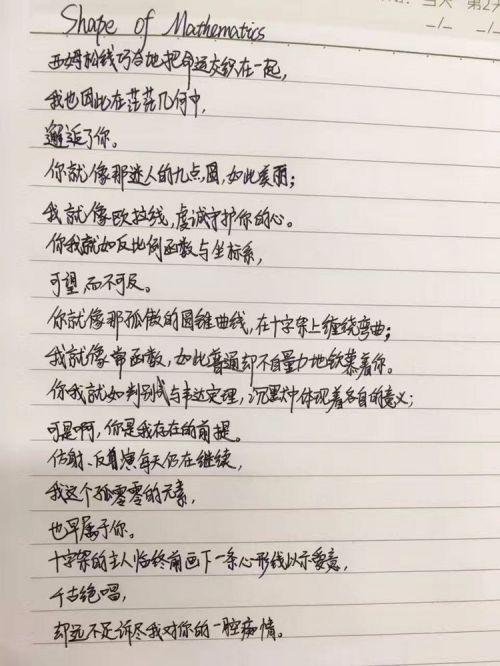 Shape of Mathematics
西姆松线巧合地把命运交织在一起,
我也因此在茫茫几何中,
邂逅了你。
你就像那迷人的九点圆,如此美丽;
我就像欧拉线,虔诚守护你的心。
你我就如反比例函数与坐标系,
可望而不可及。
你就像那孤傲的圆锥曲线,在十字架上缠绕弯曲;
我就像常函数,如此普通却不自量力地钦慕着你。
你我就如判别式与韦达定理,沉默中体现着各自的意义;
可是啊,你是我存在的前提。
仿射、反演每天仍在继续,
我这个孤零零的元素,
也早属于你。
十字架的主人临终前画下一条心形线以示爱意,
千古绝唱,
却远不足诉尽我对你的一腔痴情。
第2天
_/_ _/_